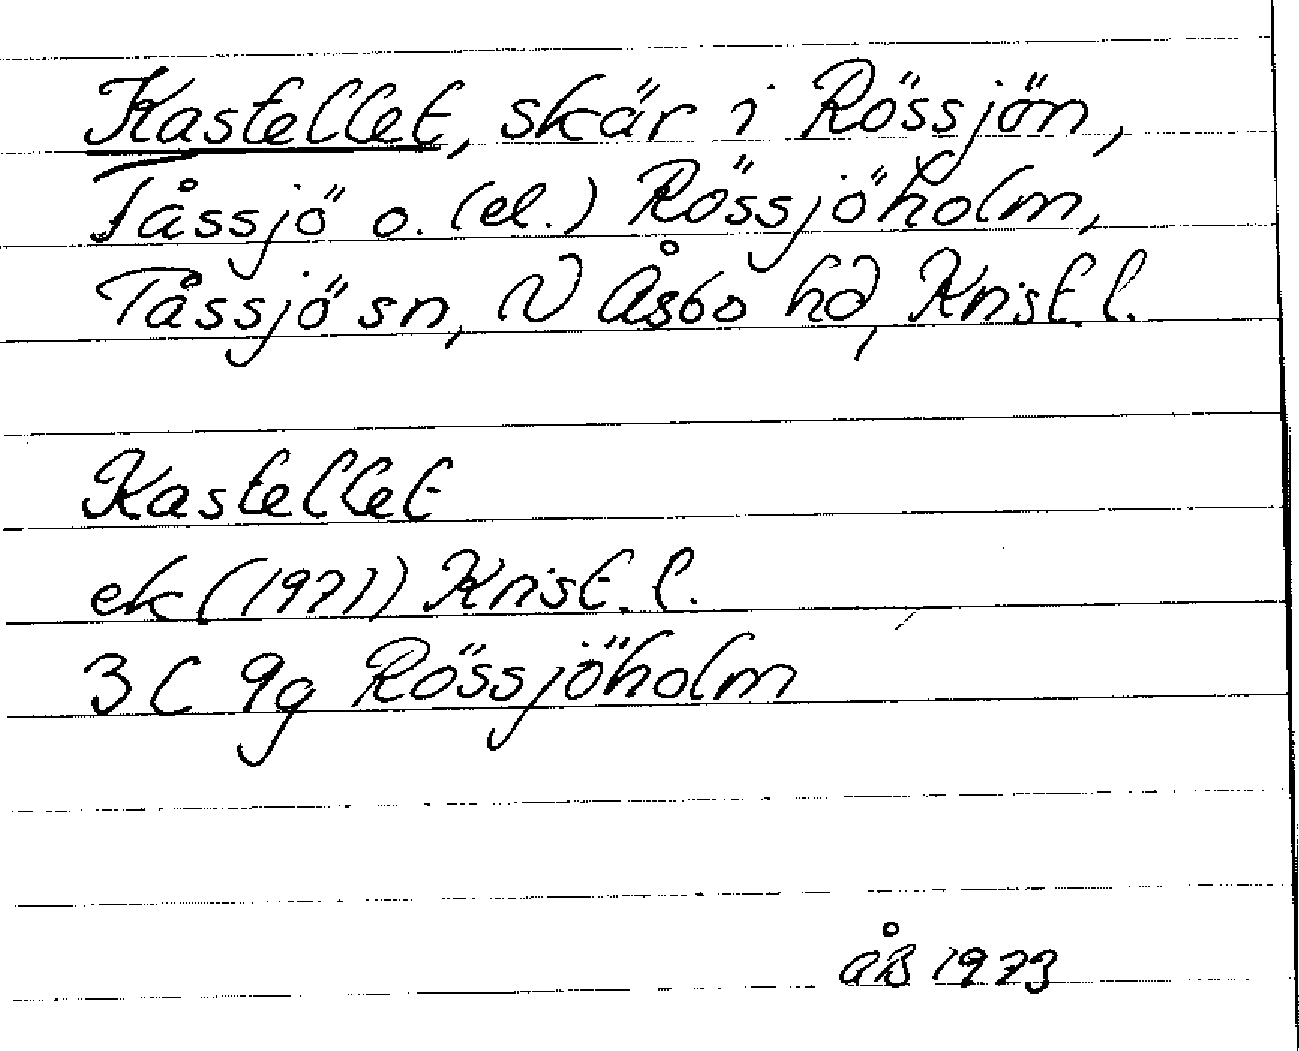 Kastellet, skär i Rössjön,
Tåssjö o. (el.) Rössjöholm,
Tåssjö sn, V Åsbo hd, Krist. l.
Kastellet
ek (1971) Krist. l.
3C 9g Rössjöholm
ÅB 1973